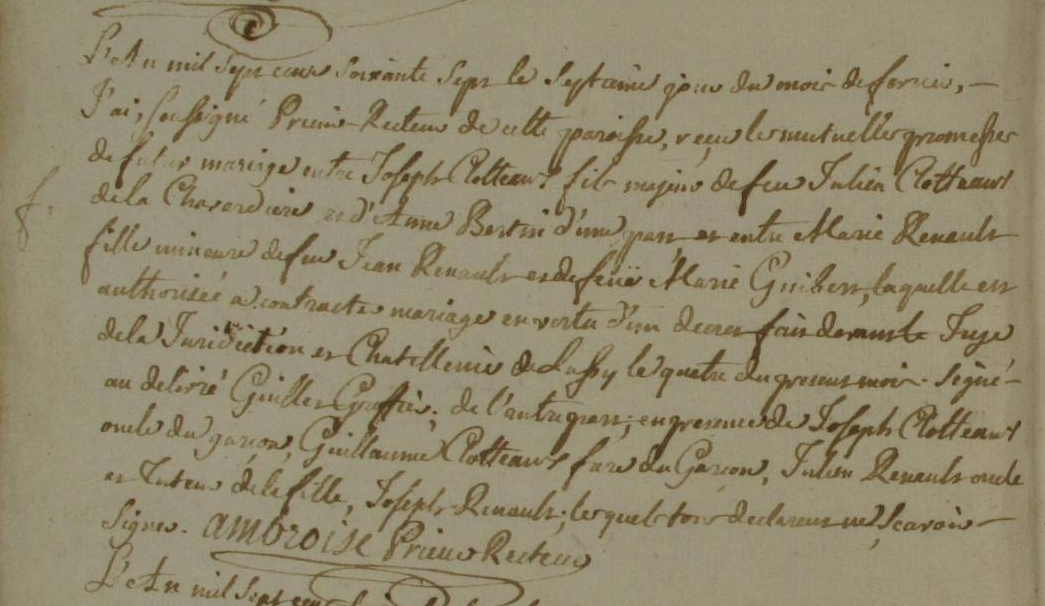 L'An mil sept cent soixante sept le septieme jour du mois de fevrier, –
J'ai, soussigné Prieur-Recteur de cette paroisse, reçu les mutuelles promesses
de futur mariage entre Joseph Clotteaux fils majeur de feu Julien Clotteaux
f.
de la Chaverdiere et d'Anne Bertin d'une part et entre Marie Renault
fille mineure de feu Jean Renault et de feuë Marie Guibert, laquelle est
authorisée à contracter mariage en vertu d'un decret fait devant le Juge
de la Juridiction et Chatellenie de Lassy le quatre du present mois. Signé –
au delivré Guiller Greffier; de l'autre part; en presence de Joseph Clotteaux
oncle du garçon, Guillaume Clotteaux frere du Garçon, Julien Renault oncle
et Tuteur de la fille, Joseph Renault; lesquels tous declarent ne sçavoir –
signer. ambroise Prieur Recteur
L'An mil sept cent